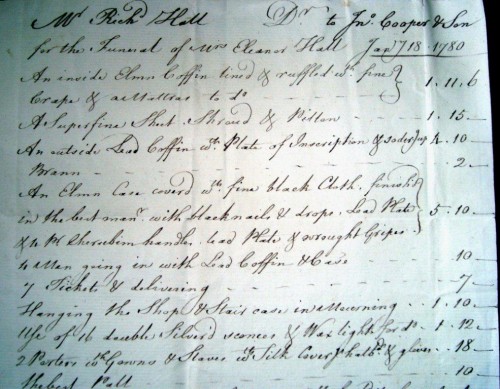 Mr Richd Hall Dr to Jno. Cooper & Son
for the Funeral of Mrs Eleanor Hall Jany 18 1780
An inside Elmn Coffin lined & ruffled wth fine
Crape & a Mattras to do 1.11.6
A Superfine Sheet Shroud & Pillow 1.15 —
An outside Lead Coffin wth Plate of Inscription & soder'g up 4.10
Brann — 2 —
An Elmn Case coverd wth fine black Cloth, finishd
in the best manr. with black nails & drops, Lead Plate 5.10 —
& 4 Pr Cherubim handles. lead Plate & wrought Gripes
4 Men going in with Lead Coffin & Case 10 —
7 Tickets & delivering 7 —
Hanging the Shop & Stair case in Mourning 1.10.
Use of 16 double Silverd sconces & Wax light for do 1.12 —
2 Porters wth Gowns & Staves wth Silk Covers & hatbd & gloves 18 —
the best Pall 10